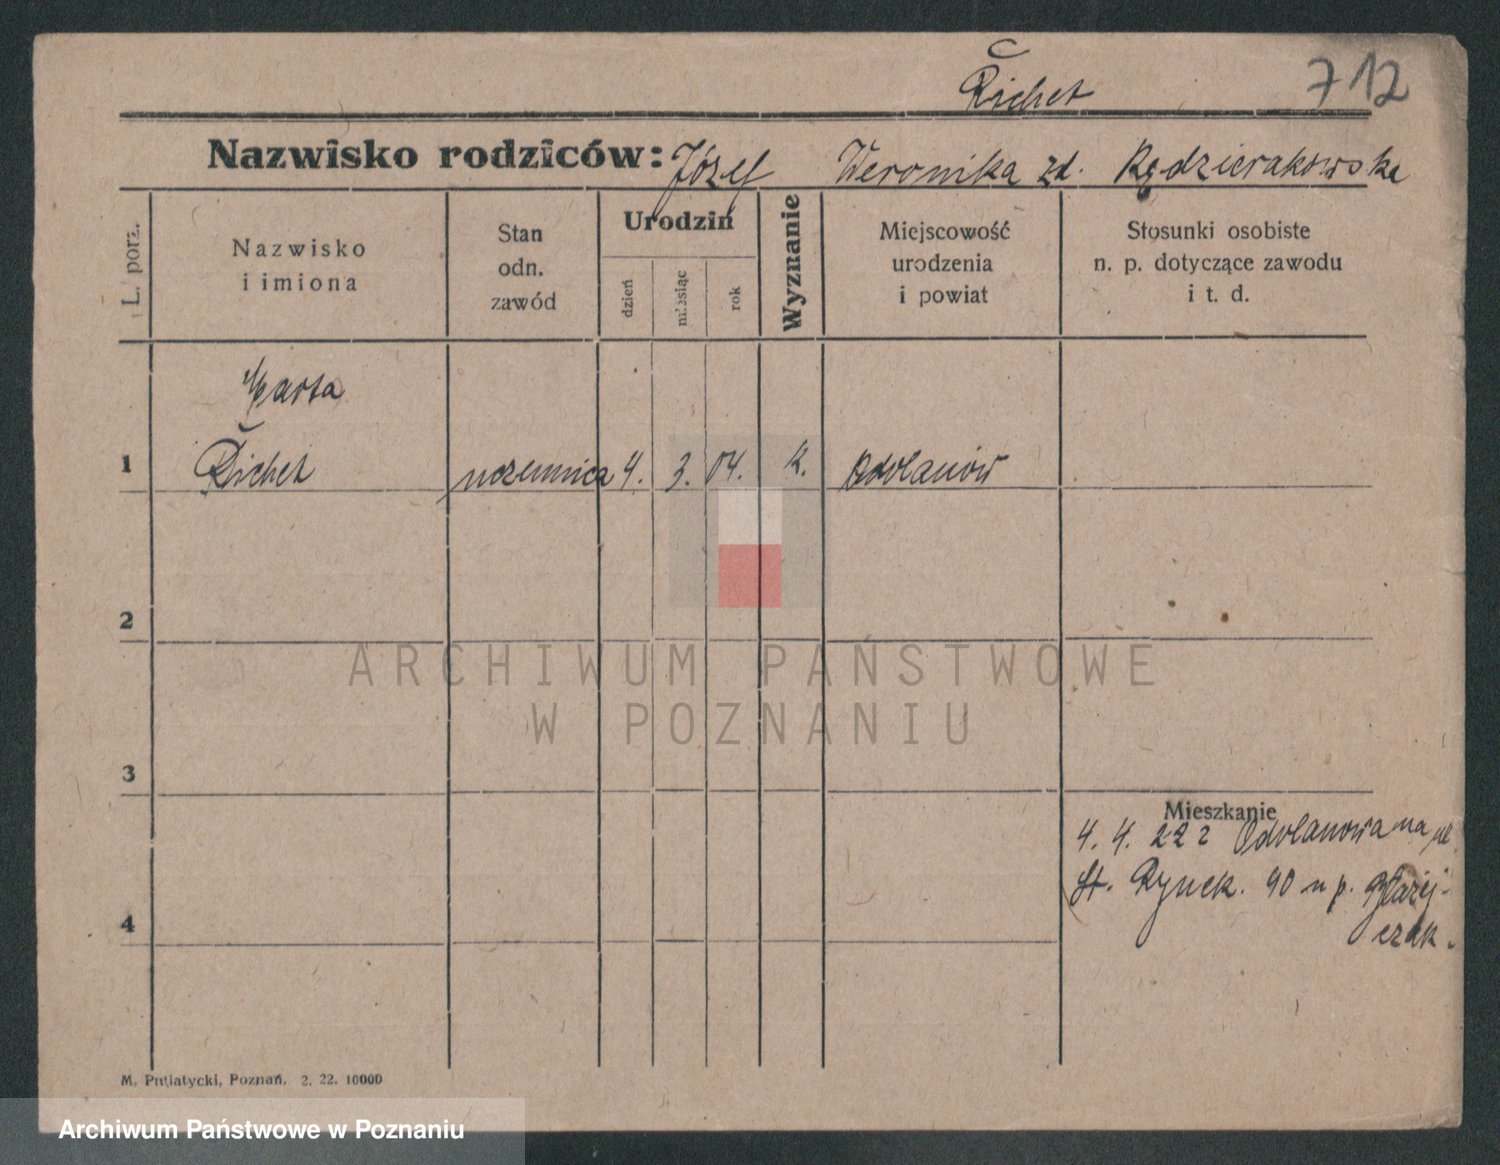 Richet 712
Nazwisko rodziców: Józef Weronika zd. Rędzierakowska
L. porz.
Nazwisko
i imiona
Stan
odn.
zawód
Urodzin
dzień
miesiąc
rok
Wyznanie
Miejscowość
urodzenia
i powiat
Stosunki osobiste
n. p. dotyczące zawodu
i t. d.
Marta
1 Richet uczennica 4. 3. 04. k. Odolanów
2
3
Mieszkanie
4. 4. 22 z Odolanowa na ul.
St. Rynek. 90 u p. Błażej-
czak.
4
M. Putiatycki, Poznań. 2. 22. 10000
ARCHIWUM PAŃSTWOWE
W POZNANIU
Archiwum Państwowe w Poznaniu